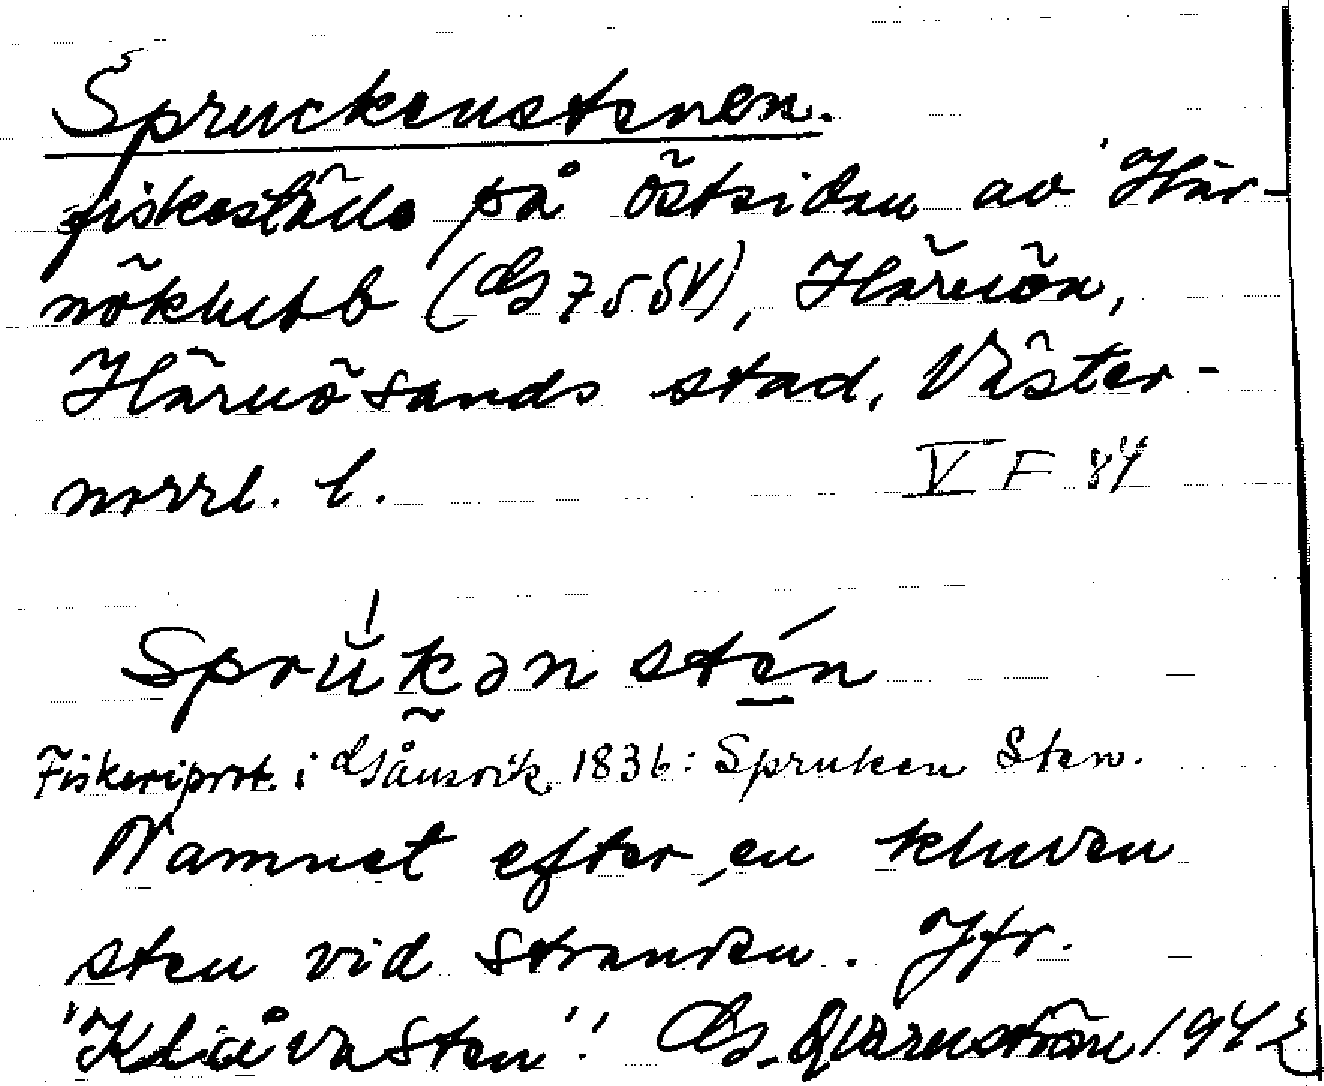 Spruckenstenen.
fiskeställe på östsidan av Här-
nöklubb (GS 75 SV), Härnön,
Härnösands stad, Väster-
norrl. l. V F 84
Sprŭkən stén
Fiskeriprot. i Gånsvik 1836: Spruken Sten.
Namnet efter en kluven
sten vid stranden. Jfr.
Sten". G. Qvarnström 1942